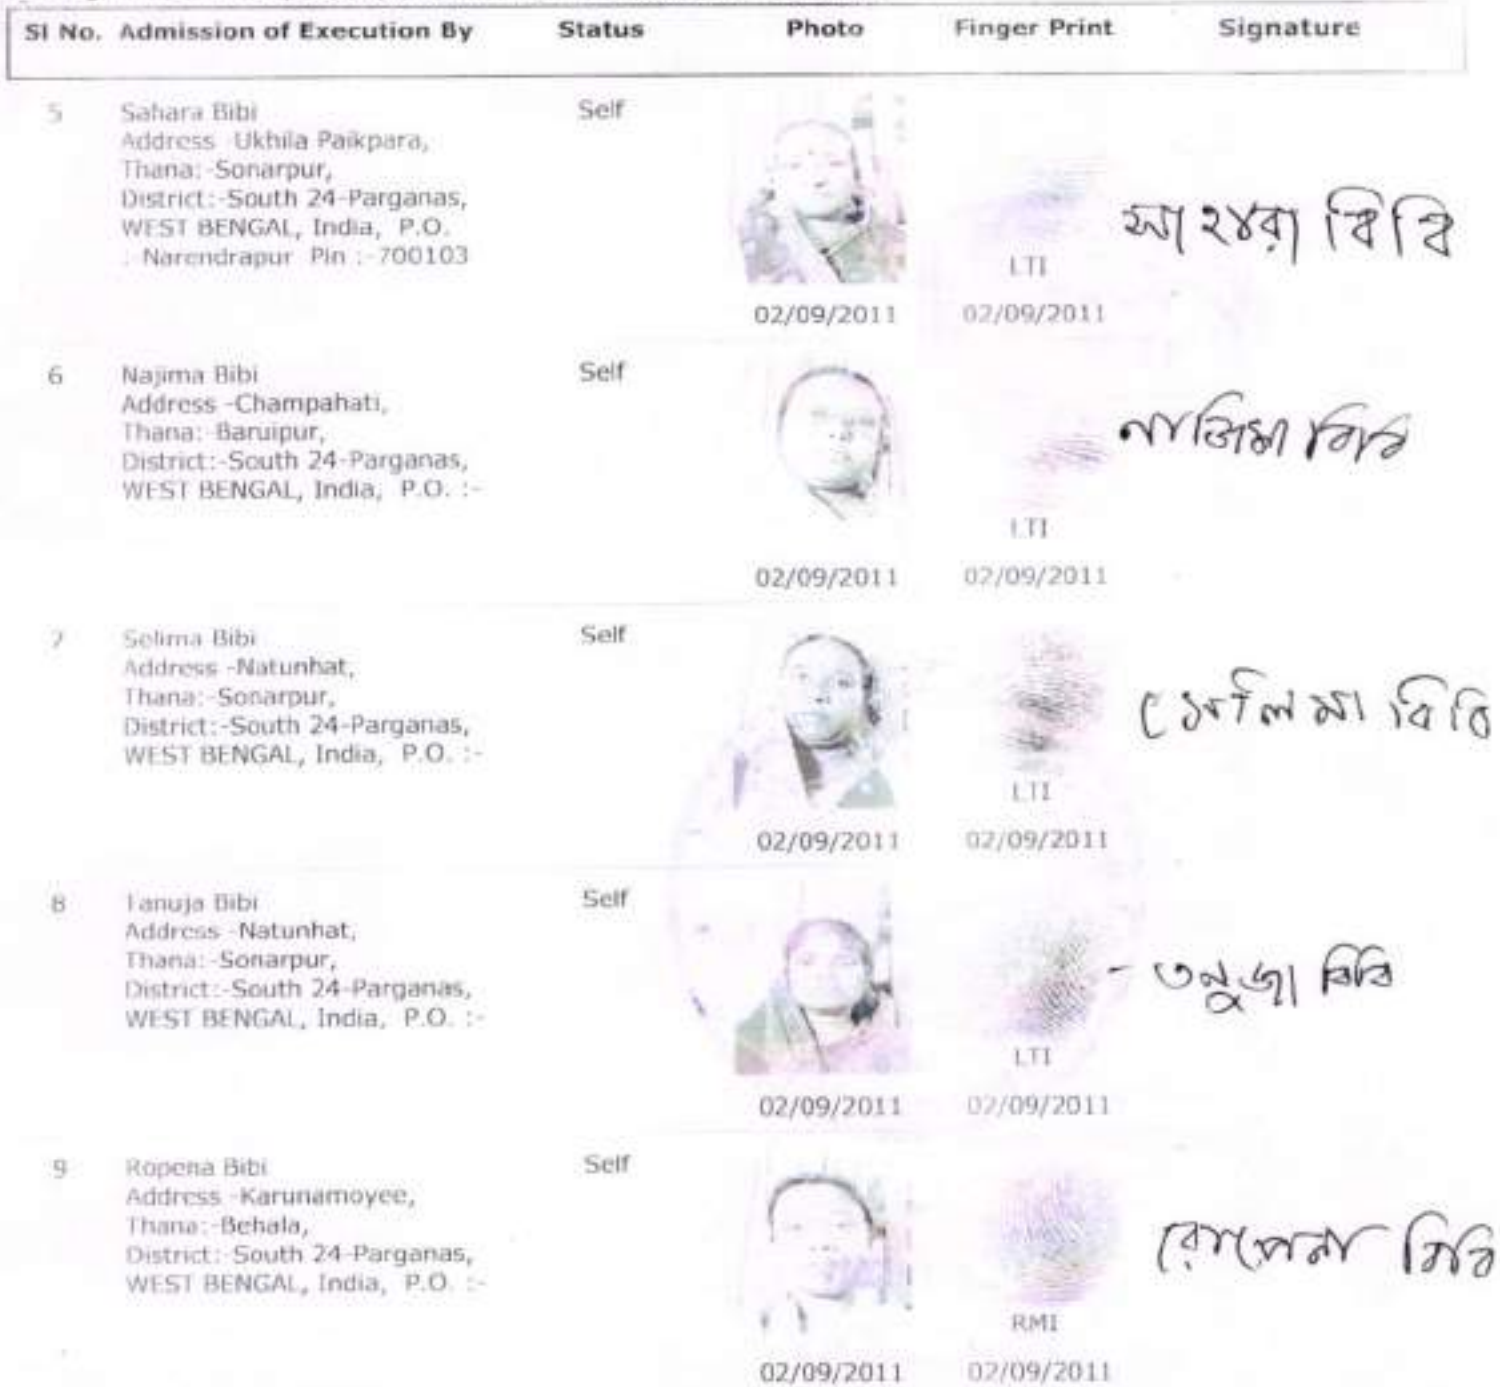 Sl No. Admission of Execution By Status Photo Finger Print Signature
5 Sahara Bibi Self
Address -Ukhila Paikpara,
Thana:-Sonarpur,
District:-South 24-Parganas,
WEST BENGAL, India, P.O.
: Narendrapur Pin :-700103
LTI
সাহারা বিবি
02/09/2011 02/09/2011
6 Najima Bibi Self
Address -Champahati,
Thana:-Baruipur,
District:-South 24-Parganas,
WEST BENGAL, India, P.O. :-
নাজিমা বিবি
LTI
02/09/2011 02/09/2011
7 Selima Bibi Self
Address -Natunhat,
Thana:-Sonarpur,
District:-South 24-Parganas,
WEST BENGAL, India, P.O. :-
সেলিমা বিবি
LTI
02/09/2011 02/09/2011
8 Tanuja Bibi Self
Address -Natunhat,
Thana:-Sonarpur,
District:-South 24-Parganas,
WEST BENGAL, India, P.O. :-
- তনুজা বিবি
LTI
02/09/2011 02/09/2011
9 Ropena Bibi Self
Address -Karunamoyee,
Thana:-Behala,
District:-South 24-Parganas,
WEST BENGAL, India, P.O. :-
রোপেনা বিবি
RMI
02/09/2011 02/09/2011